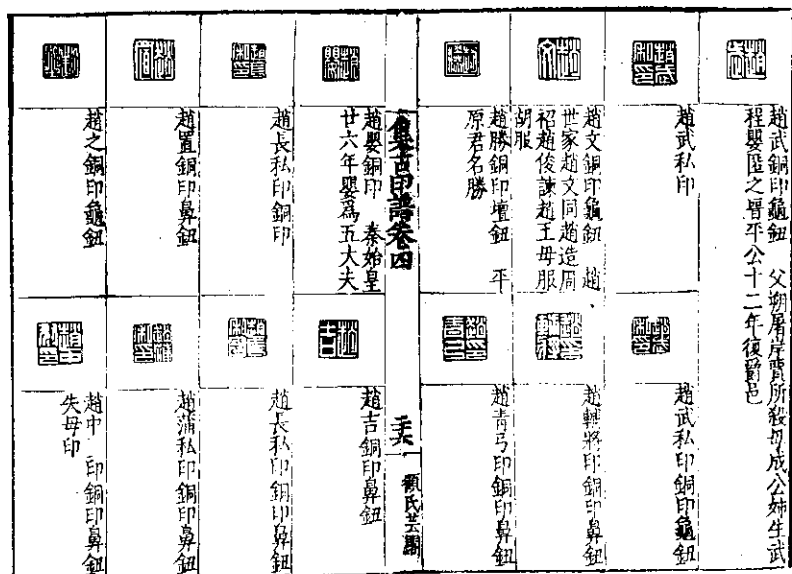 趙武銅印龜鈕　父朔屠岸賈所殺母成公姊生武
程嬰匿之晉平公十二年復爵邑
趙武私印
趙武私印銅印龜鈕
趙文銅印龜鈕　趙
世家趙文同趙造周
袑趙俊諫趙王毋服
胡服
趙輔將印銅印鼻鈕
趙勝銅印壇鈕　平
原君名勝
趙青弓印銅印鼻鈕
集古印譜卷四
顧氏芸閣
趙嬰銅印　秦始皇
廿六年嬰為五大夫
趙吉銅印鼻鈕
趙長私印銅印
趙長私印銅印鼻鈕
趙置銅印鼻鈕
趙蒲私印銅印鼻鈕
趙之銅印龜鈕
趙中　印銅印鼻鈕
失母印